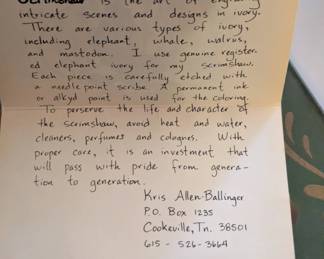 Scrimshaw is the art of engraving
intricate scenes and designs in ivory.
There are various types of ivory,
including elephant, whale, walrus,
and mastodon. I use genuine register-
ed elephant ivory for my Scrimshaw.
Each piece is carefully etched with
a needle point scribe. A permanent ink
or alkyd point is used for the coloring.
To perserve the life and character of
the Scrimshaw, avoid heat and water,
cleaners, perfumes and colognes. With
proper care, it is an investment that
will pass with pride from genera-
tion to generation.
Kris Allen-Ballinger
P.O. Box 1235
Cookeville, Tn. 38501
615-526-3664